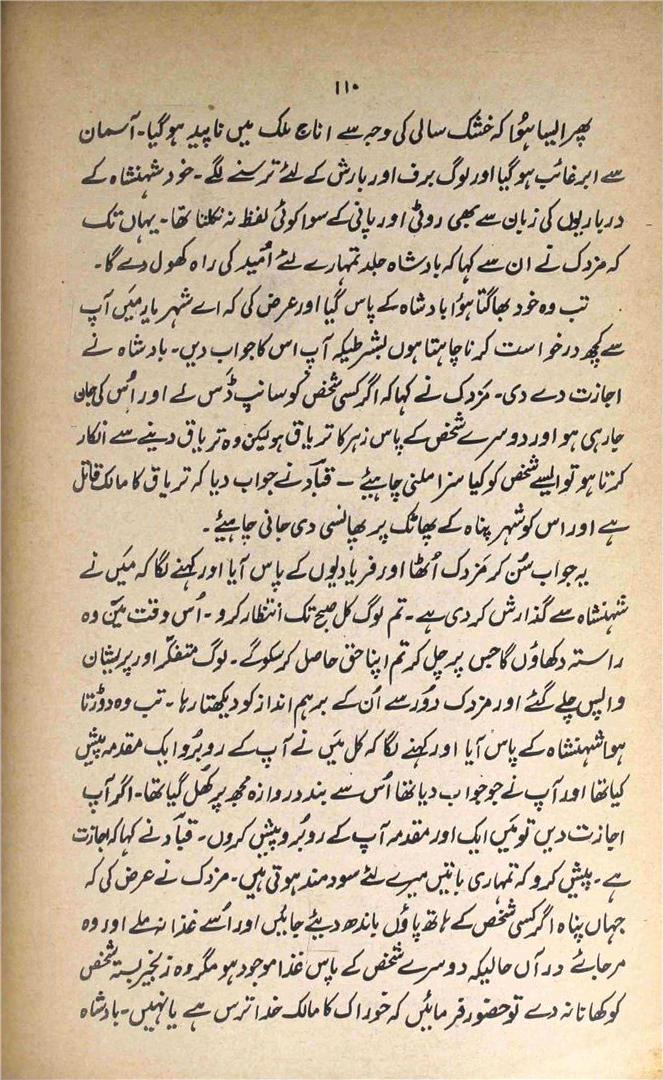 ۱۱۰
پھر ایسا ہؤا کہ خشک سالی کی وجہ سے اناج ملک میں ناپید ہو گیا۔ آسمان
سے ابر غائب ہو گیا اور لوگ برف اور بارش کے لئے ترسنے لگے۔ خود شہنشاہ کے
درباریوں کی زبان سے بھی روٹی اور پانی کے سوا کوئی لفظ نہ نکلتا تھا۔ یہاں تک
کہ مزدک نے ان سے کہا کہ بادشاہ جلد تمہارے لئے اُمید کی راہ کھول دے گا۔
تب وہ خود بھاگتا ہؤا بادشاہ کے پاس گیا اور عرض کی کہ اے شہریار میَں آپ
سے کچھ درخواست کرنا چاہتا ہوں بشرطیکہ آپ اس کا جواب دیں۔ بادشاہ نے
اجازت دے دی۔ مزدک نے کہا کہ اگر کسی شخص کو سانپ ڈَس لے اور اُس کی جان
جا رہی ہو اور دوسرے شخص کے پاس زہر کا تریاق ہو لیکن وہ تریاق دینے سے انکار
کرتا ہو تو ایسے شخص کو کیا سزا ملنی چاہیئے – قباد نے جواب دیا کہ تریاق کا مالک قاتل
ہے اور اس کو شہر پناہ کے پھاٹک پر پھانسی دی جانی چاہیئے۔
یہ جواب سُن کر مَزدک اُٹھا اور فریادیوں کے پاس آیا اور کہنے لگا کہ میَں نے
شہنشاہ سے گذارش کر دی ہے۔ تم لوگ کل صبح تک انتظار کرو۔ اُس وقت میَں وہ
راستہ دکھاؤں گا جس پر چل کر تم اپنا حق حاصل کر سکو گے۔ لوگ متفکّر اور پریشان
واپس چلے گئے اور مزدک دُور سے اُن کے برہم انداز کو دیکھتا رہا۔ تب وہ دوڑتا
ہوا شہنشاہ کے پاس آیا اور کہنے لگا کہ کل میَں نے آپ کے روبُرو ایک مقدمہ پیش
کیا تھا اور آپ نے جو جواب دیا تھا اُس سے بند دروازہ مجھ پر کھُل گیا تھا۔ اگر آپ
اجازت دیں تو میَں ایک اور مقدمہ آپ کے روبُرو پیش کروں۔ قباد نے کہا کہ اجازت
ہے۔ پیش کرو کہ تمہاری باتیں میرے لئے سودمند ہوتی ہیں۔ مزدک نے عرض کی کہ
جہاں پناہ اگر کسی شخص کے ہاتھ پاؤں باندھ دیئے جائیں اور اُسے غذا نہ ملے اور وہ
مر جائے درآں حالیکہ دوسرے شخص کے پاس غذا موجود ہو مگر وہ زنجیر بستہ شخص
کو کھانا نہ دے تو حضور فرمائیں کہ خوراک کا مالک خدا ترس ہے یا نہیں۔ بادشاہ